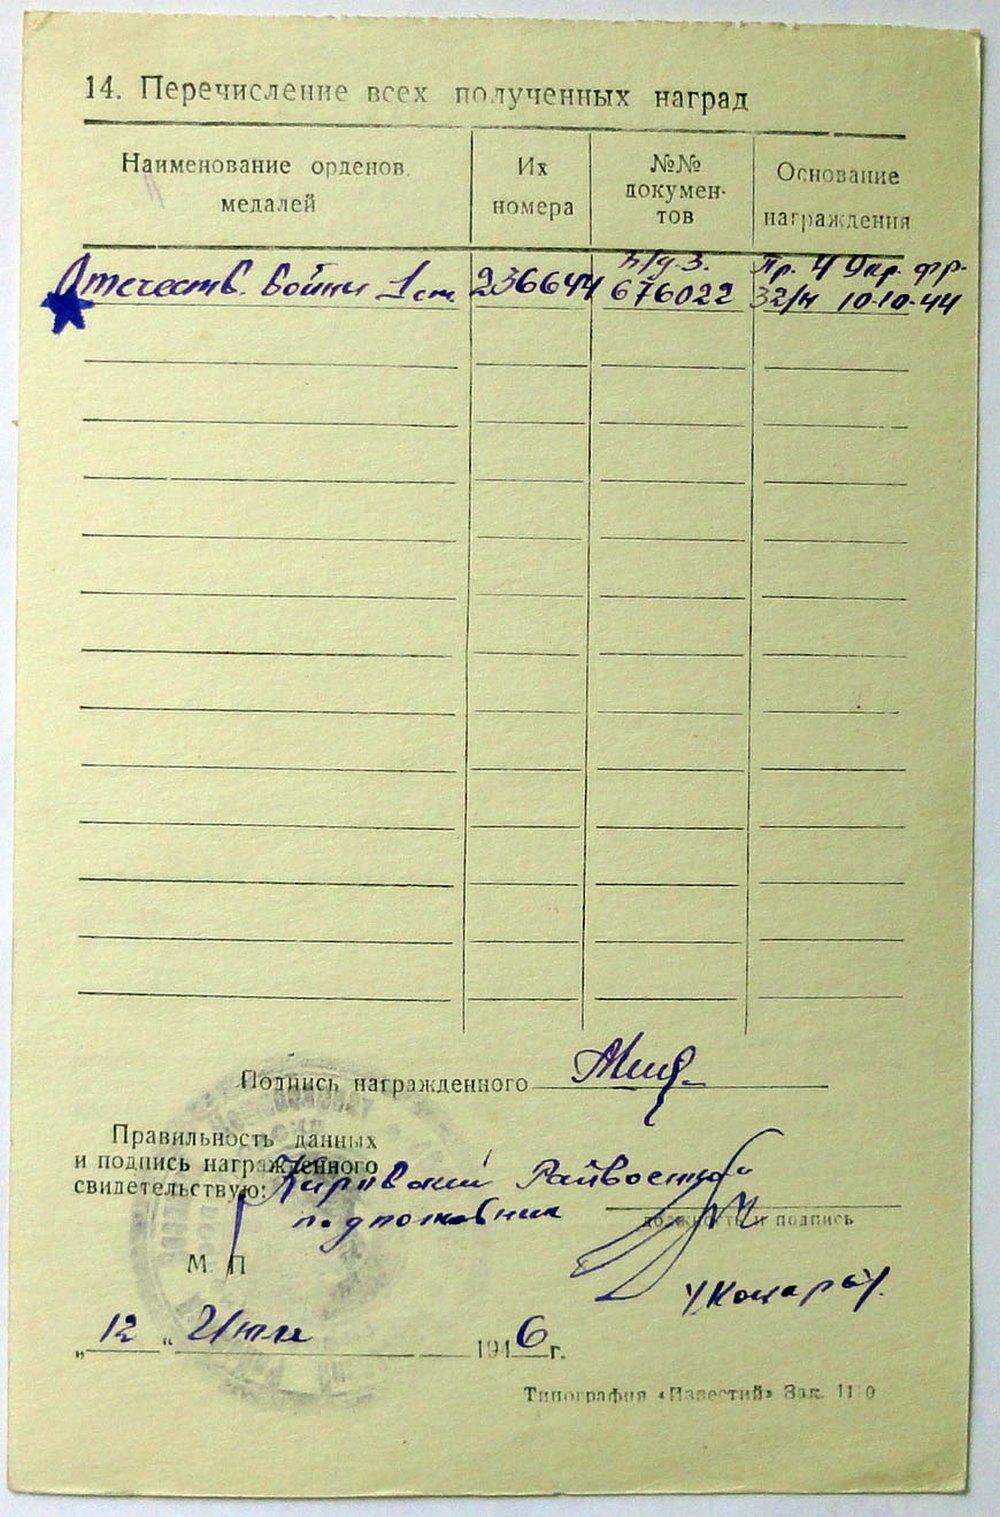 14. Перечисление всех полученных наград
Наименование орденов, медалей
Их номера
№№ документов
Основание награждения
Отечеств. войны 1 ст.
236644
в/д. з.
676022
Пр. 4 Укр. фр.
32/н 10-10-44
Подпись награжденного
Правильность данных
и подпись награжденного
свидетельствую: Кировский Райвоенком
подполковник
должность и подпись
М П
/Кошарь/.
„12“ Июля 1946 г.
Типография «Известий» Зак.